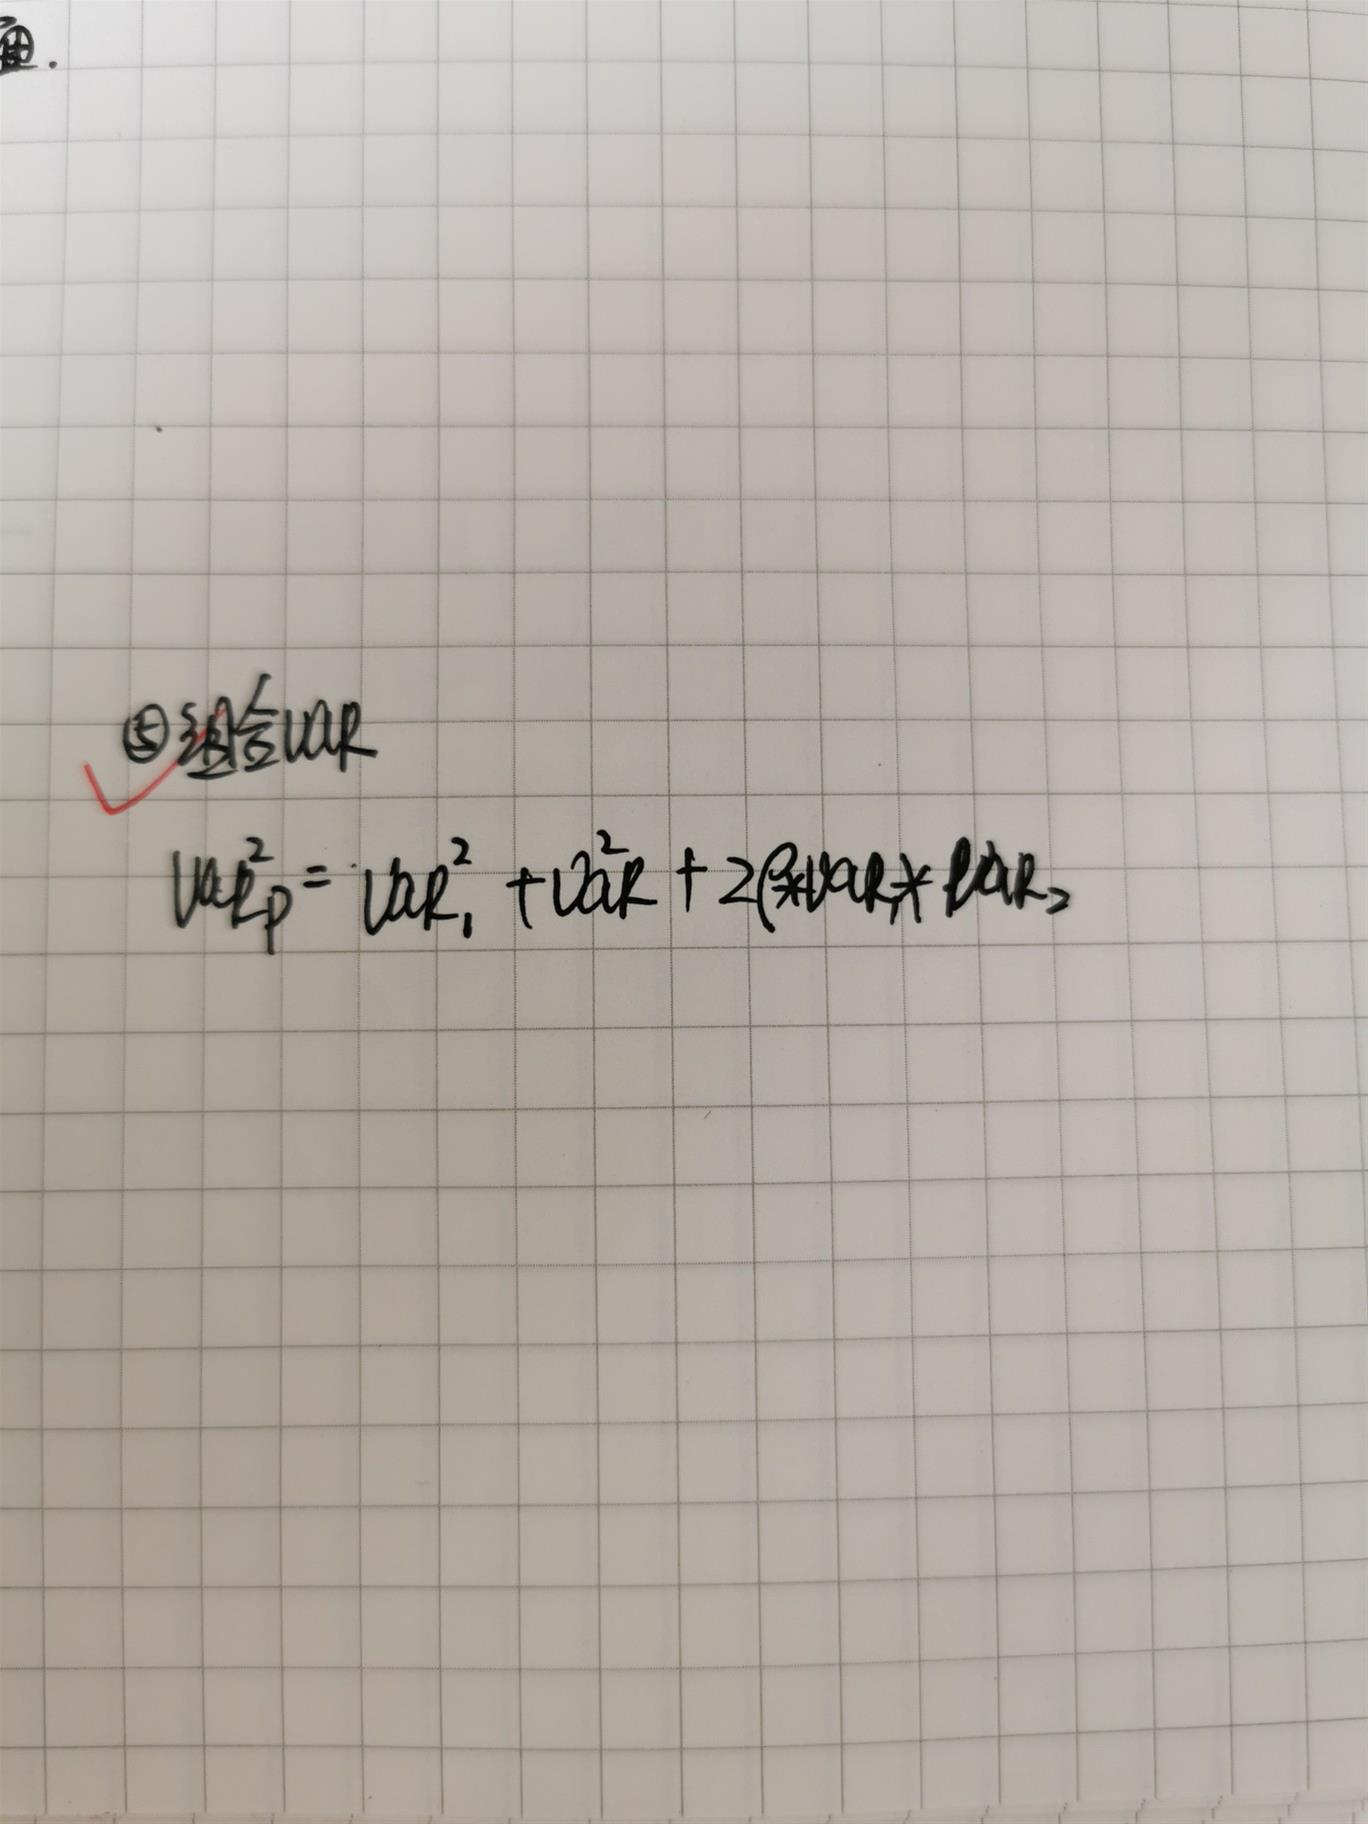 ⑤组合VaR
VaR²ₚ = VaR₁² + VaR² + 2ρ*VaR₁*VaR₂